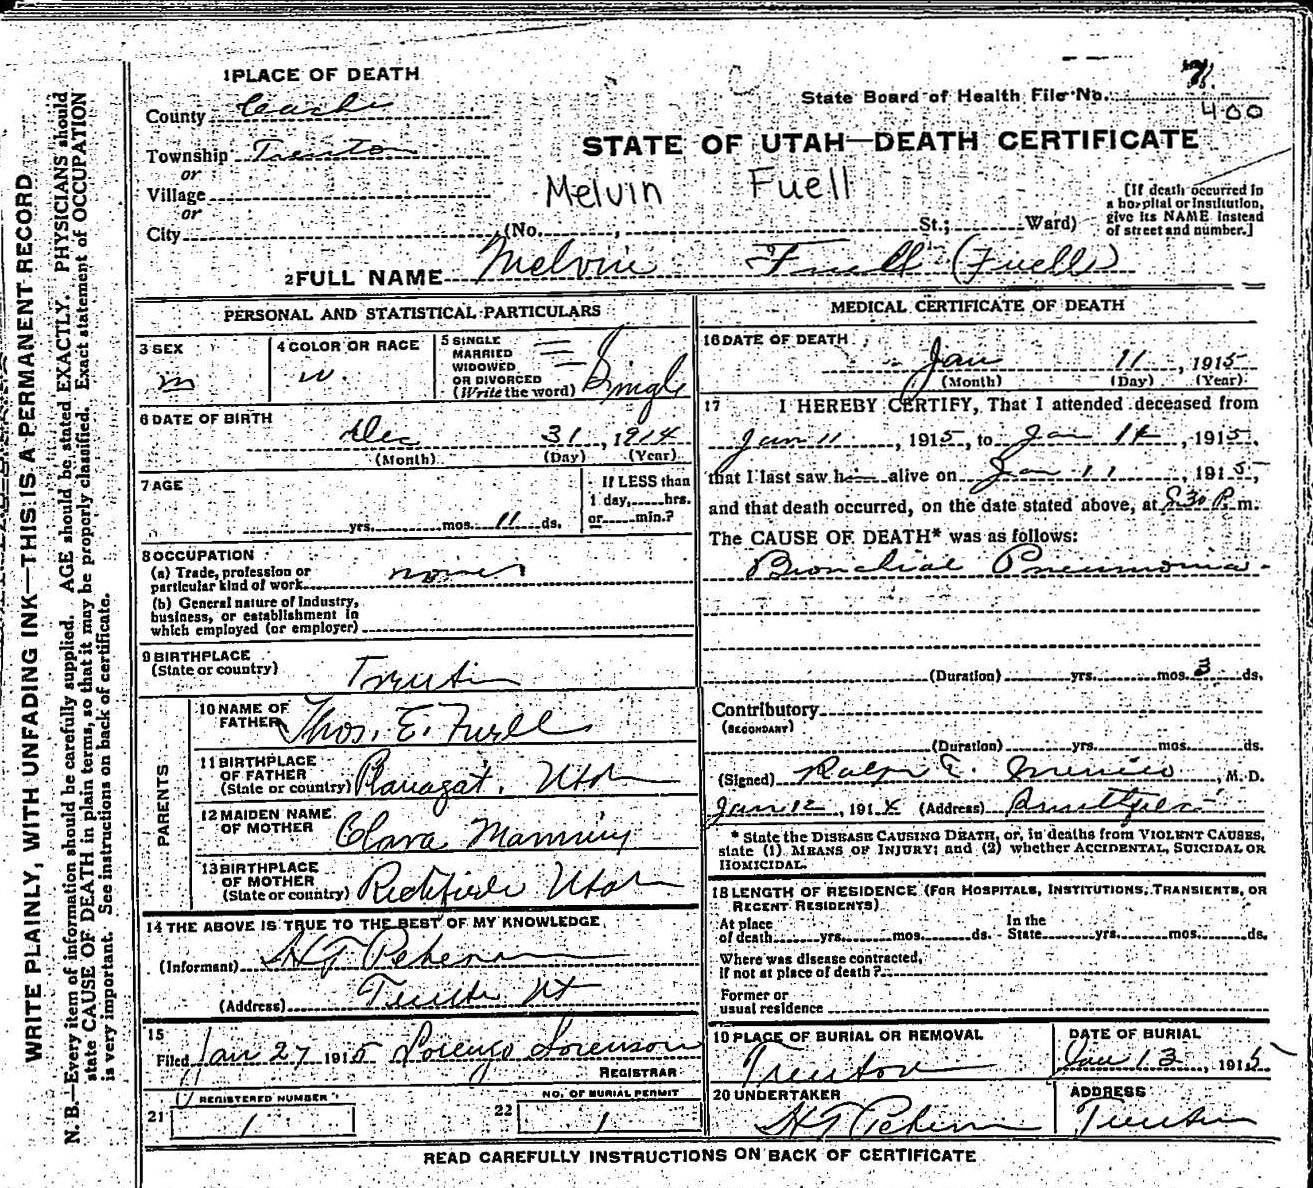 WRITE PLAINLY, WITH UNFADING INK—THIS IS A PERMANENT RECORD
N. B.—Every item of information should be carefully supplied. AGE should be stated EXACTLY. PHYSICIANS should
state CAUSE OF DEATH in plain terms, so that it may be properly classified. Exact statement of OCCUPATION
is very important. See instructions on back of certificate.
1 PLACE OF DEATH
County Cache
Township Trenton
or
Village
or
City (No. , St.; Ward)
State Board of Health File No. 7
400
STATE OF UTAH—DEATH CERTIFICATE
Melvin Fuell
[If death occurred in
a hospital or institution,
give its NAME instead
of street and number.]
2 FULL NAME Melvin Fuell (Fuell)
PERSONAL AND STATISTICAL PARTICULARS
3 SEX
m
4 COLOR OR RACE
w.
5 SINGLE
MARRIED
WIDOWED
OR DIVORCED
(Write the word) Single
6 DATE OF BIRTH
Dec 31, 1914
(Month) (Day) (Year)
7 AGE
yrs. mos. 11 ds.
If LESS than
1 day, hrs.
or min.?
8 OCCUPATION
(a) Trade, profession or
particular kind of work
(b) General nature of Industry,
business, or establishment in
which employed (or employer)
9 BIRTHPLACE
(State or country) Trenton
PARENTS
10 NAME OF
FATHER Thos. E. Fuell
11 BIRTHPLACE
OF FATHER
(State or country) Utah
12 MAIDEN NAME
OF MOTHER Clara Manning
13 BIRTHPLACE
OF MOTHER
(State or country) Richfield Utah
14 THE ABOVE IS TRUE TO THE BEST OF MY KNOWLEDGE
(Informant)
(Address) Trenton Ut
15
Filed Jan 27 1915 Lorenzo Sorenson
REGISTRAR
REGISTERED NUMBER
21 1
NO. OF BURIAL PERMIT
22 1
MEDICAL CERTIFICATE OF DEATH
16 DATE OF DEATH
Jan 11, 1915
(Month) (Day) (Year)
17 I HEREBY CERTIFY, That I attended deceased from
Jan 11, 1915, to Jan 11, 1915,
that I last saw h alive on Jan 11, 1915,
and that death occurred, on the date stated above, at 8 30 P. m.
The CAUSE OF DEATH* was as follows:
Bronchial Pneumonia
(Duration) yrs. mos. 3 ds.
Contributory
(SECONDARY)
(Duration) yrs. mos. ds.
(Signed) Ralph E. , M. D.
Jan 12, 1914 (Address)
* State the DISEASE CAUSING DEATH, or, in deaths from VIOLENT CAUSES,
state (1) MEANS OF INJURY; and (2) whether ACCIDENTAL, SUICIDAL OR
HOMICIDAL.
18 LENGTH OF RESIDENCE (FOR HOSPITALS, INSTITUTIONS, TRANSIENTS, OR
RECENT RESIDENTS)
At place
of death yrs. mos. ds.
In the
State yrs. mos. ds.
Where was disease contracted,
if not at place of death?
Former or
usual residence
19 PLACE OF BURIAL OR REMOVAL
Trenton
DATE OF BURIAL
Jan 13, 1915
20 UNDERTAKER
ADDRESS
Trenton
READ CAREFULLY INSTRUCTIONS ON BACK OF CERTIFICATE